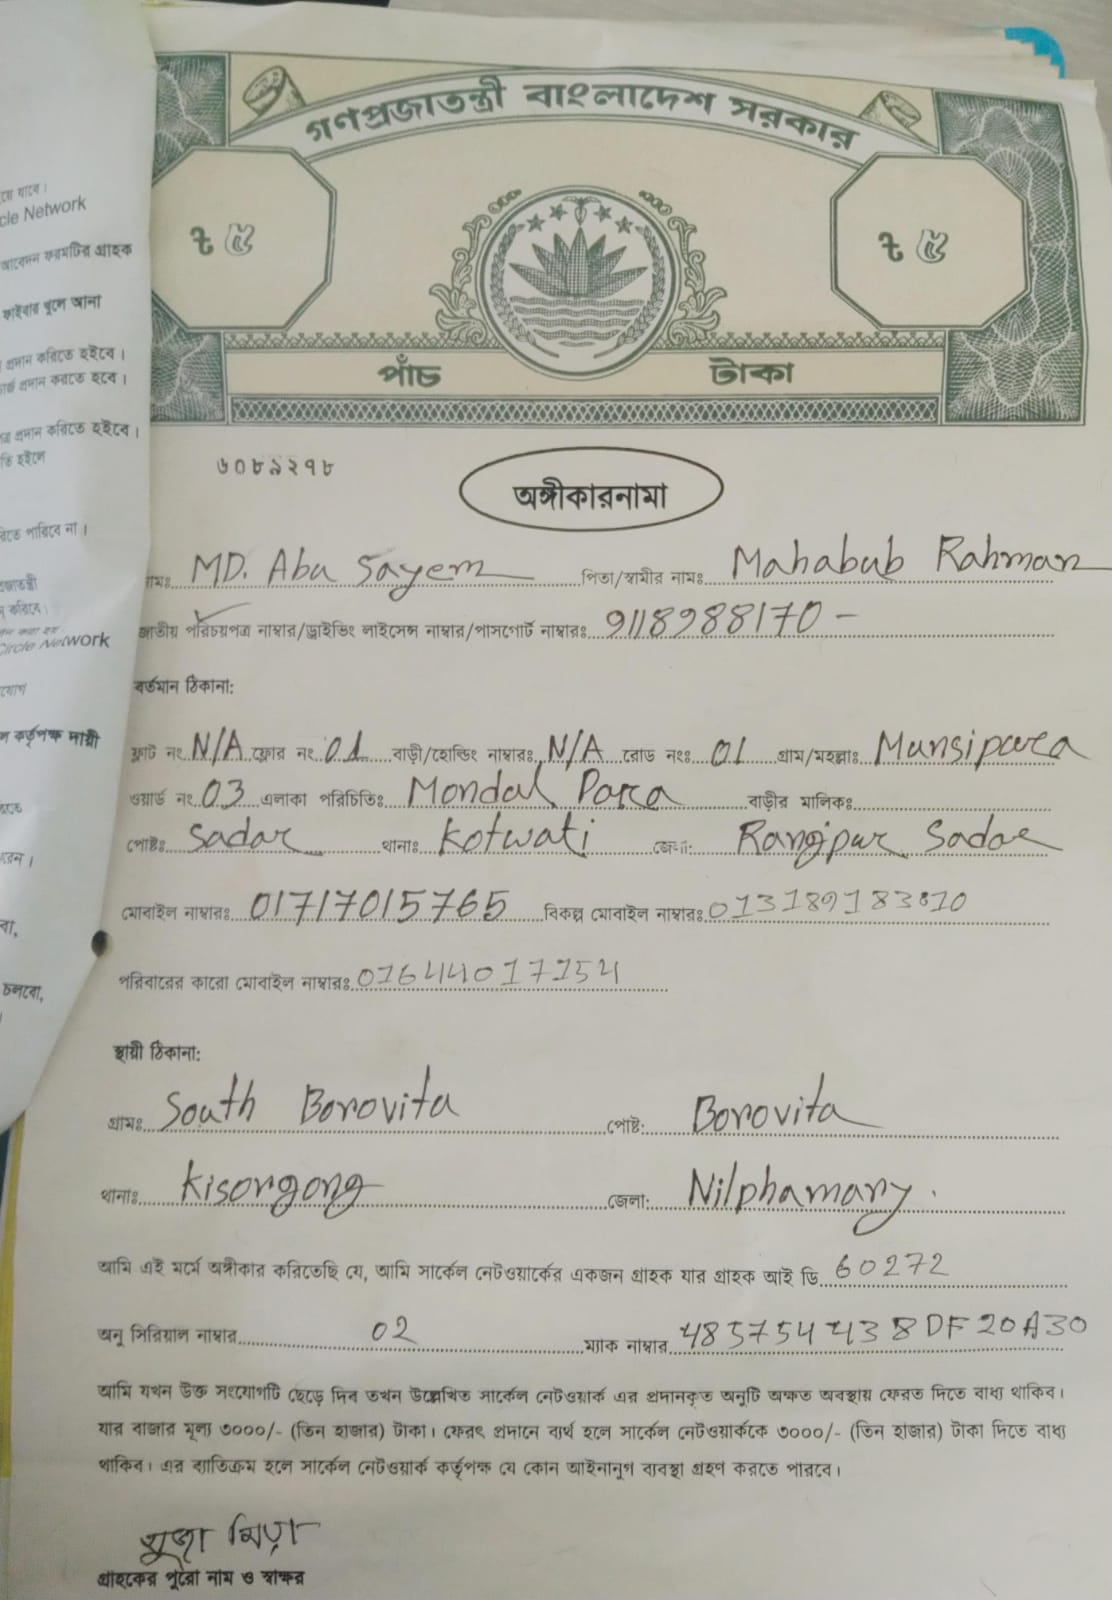 য়ে যাবে।
cle Network
আবেদন ফরমটির গ্রাহক
ফাইবার খুলে আনা
প্রদান করিতে হইবে।
চার্জ প্রদান করতে হবে।
প্রদান করিতে হইবে।
তি হইলে
রিতে পারিবে না।
প্রজাতন্ত্রী
করিবে।
Circle Network
যোগ
ল কর্তৃপক্ষ দায়ী
চলবো,
গণপ্রজাতন্ত্রী বাংলাদেশ সরকার
৳ ৫
৳ ৫
পাঁচ টাকা
৬০৮৯২৭৮
অঙ্গীকারনামা
নামঃ MD. Abu Sayem পিতা/স্বামীর নামঃ Mahabub Rahman
জাতীয় পরিচয়পত্র নাম্বার/ড্রাইভিং লাইসেন্স নাম্বার/পাসপোর্ট নাম্বারঃ 9118988170 -
বর্তমান ঠিকানা:
ফ্লাট নং N/A ফ্লোর নং 01 বাড়ী/হোল্ডিং নাম্বারঃ N/A রোড নংঃ 01 গ্রাম/মহল্লাঃ Munsipara
ওয়ার্ড নং 03 এলাকা পরিচিতিঃ Mondal Para বাড়ীর মালিকঃ
পোষ্টঃ Sadar থানাঃ Kotwati জেলা: Rangpur Sadar
মোবাইল নাম্বারঃ 01717015765 বিকল্প মোবাইল নাম্বারঃ
পরিবারের কারো মোবাইল নাম্বারঃ 01644017154
স্থায়ী ঠিকানা:
গ্রামঃ South Borovita পোষ্ট: Borovita
থানাঃ Kisorgong জেলা: Nilphamary.
আমি এই মর্মে অঙ্গীকার করিতেছি যে, আমি সার্কেল নেটওয়ার্কের একজন গ্রাহক যার গ্রাহক আই ডি 60272
অনু সিরিয়াল নাম্বার 02 ম্যাক নাম্বার 485754438DF20A30
আমি যখন উক্ত সংযোগটি ছেড়ে দিব তখন উল্লেখিত সার্কেল নেটওয়ার্ক এর প্রদানকৃত অনুটি অক্ষত অবস্থায় ফেরত দিতে বাধ্য থাকিব।
যার বাজার মূল্য ৩০০০/- (তিন হাজার) টাকা। ফেরৎ প্রদানে ব্যর্থ হলে সার্কেল নেটওয়ার্ককে ৩০০০/- (তিন হাজার) টাকা দিতে বাধ্য
থাকিব। এর ব্যতিক্রম হলে সার্কেল নেটওয়ার্ক কর্তৃপক্ষ যে কোন আইনানুগ ব্যবস্থা গ্রহণ করতে পারবে।
গ্রাহকের পুরো নাম ও স্বাক্ষর